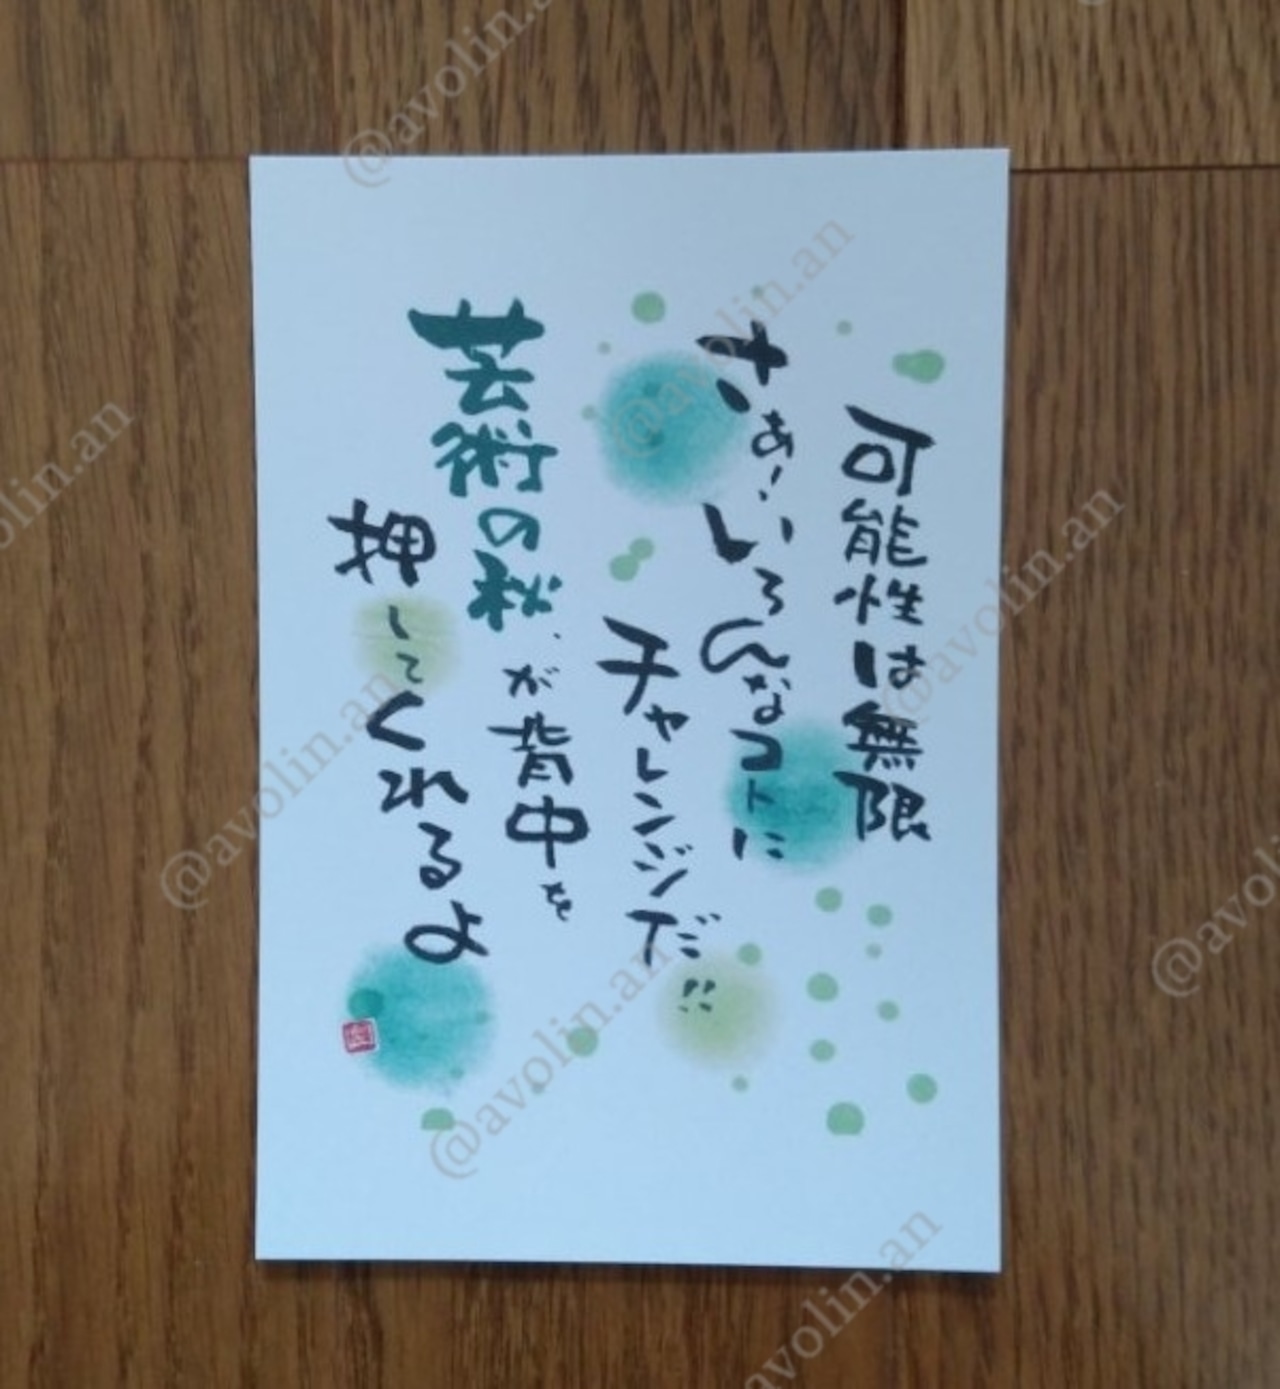 可能性は無限
さぁ！いろんなコトに
チャレンジだ!!
芸術の秋が背中を
押してくれるよ
@avolin.an
@avolin.an
@avolin.an
@avolin.an
@avolin.an
@avolin.an
@avolin.an
@avolin.an